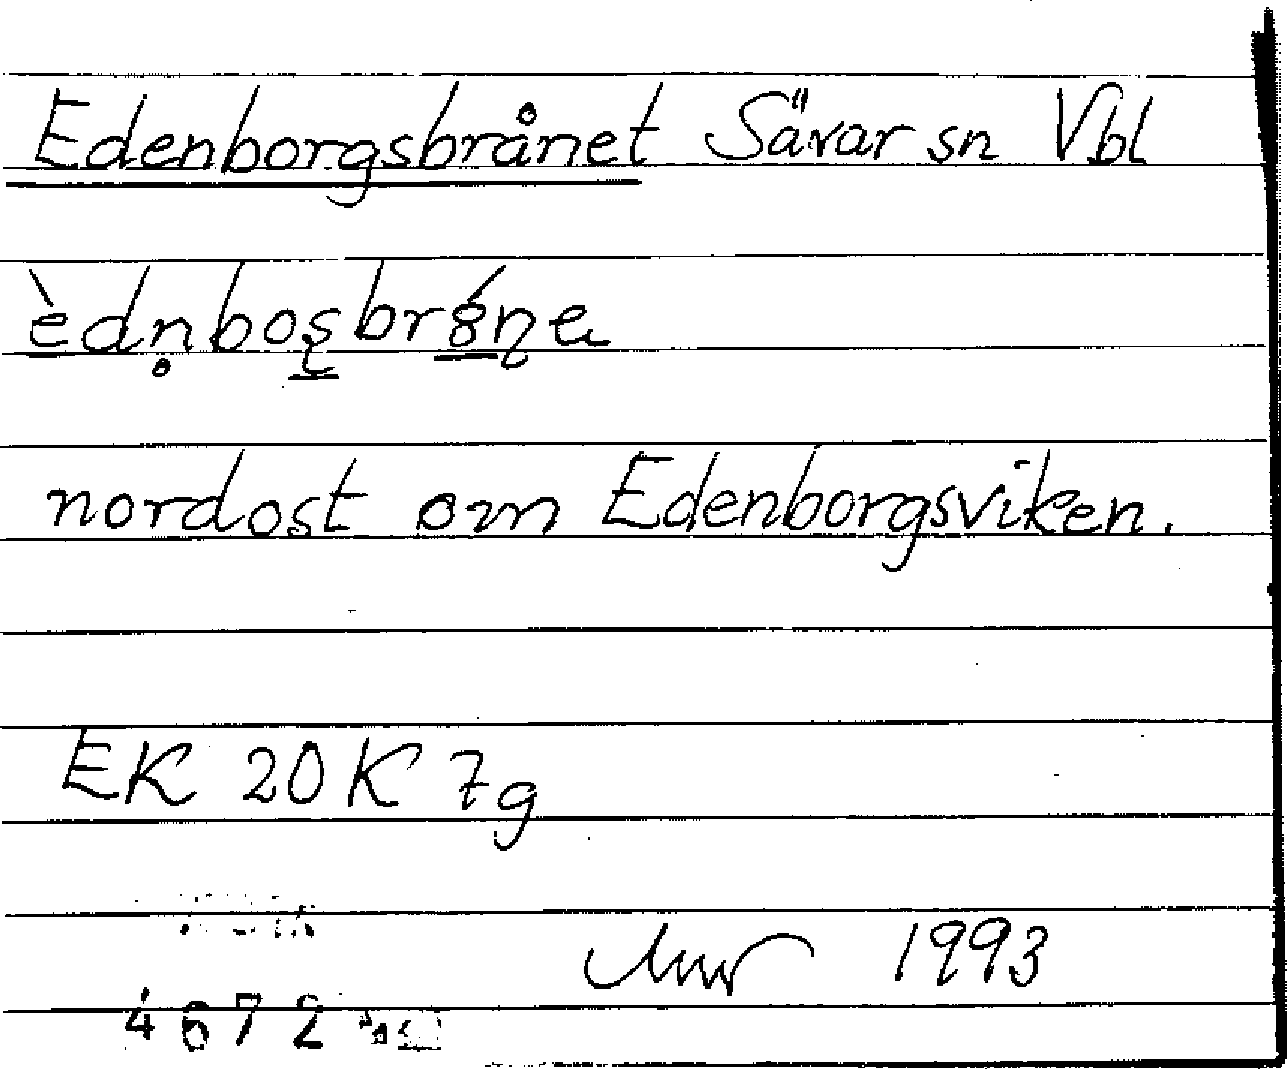 Edenborgsbrånet Sävar sn Vbl
nordost om Edenborgsviken.
EK 20K 7g
1993
4672